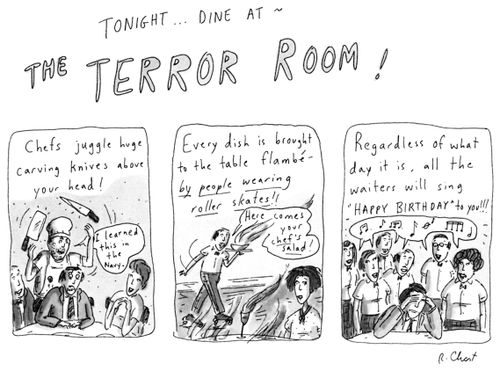 TONIGHT... DINE AT ~
THE TERROR ROOM!
Chefs juggle huge
carving knives above
your head!
I learned
this in
the
Navy.
Every dish is brought
to the table flambé-
by people wearing
roller skates!!
Here comes
your
chef's
salad!
Regardless of what
day it is, all the
waiters will sing
"HAPPY BIRTHDAY" to you!!!
R. Chast